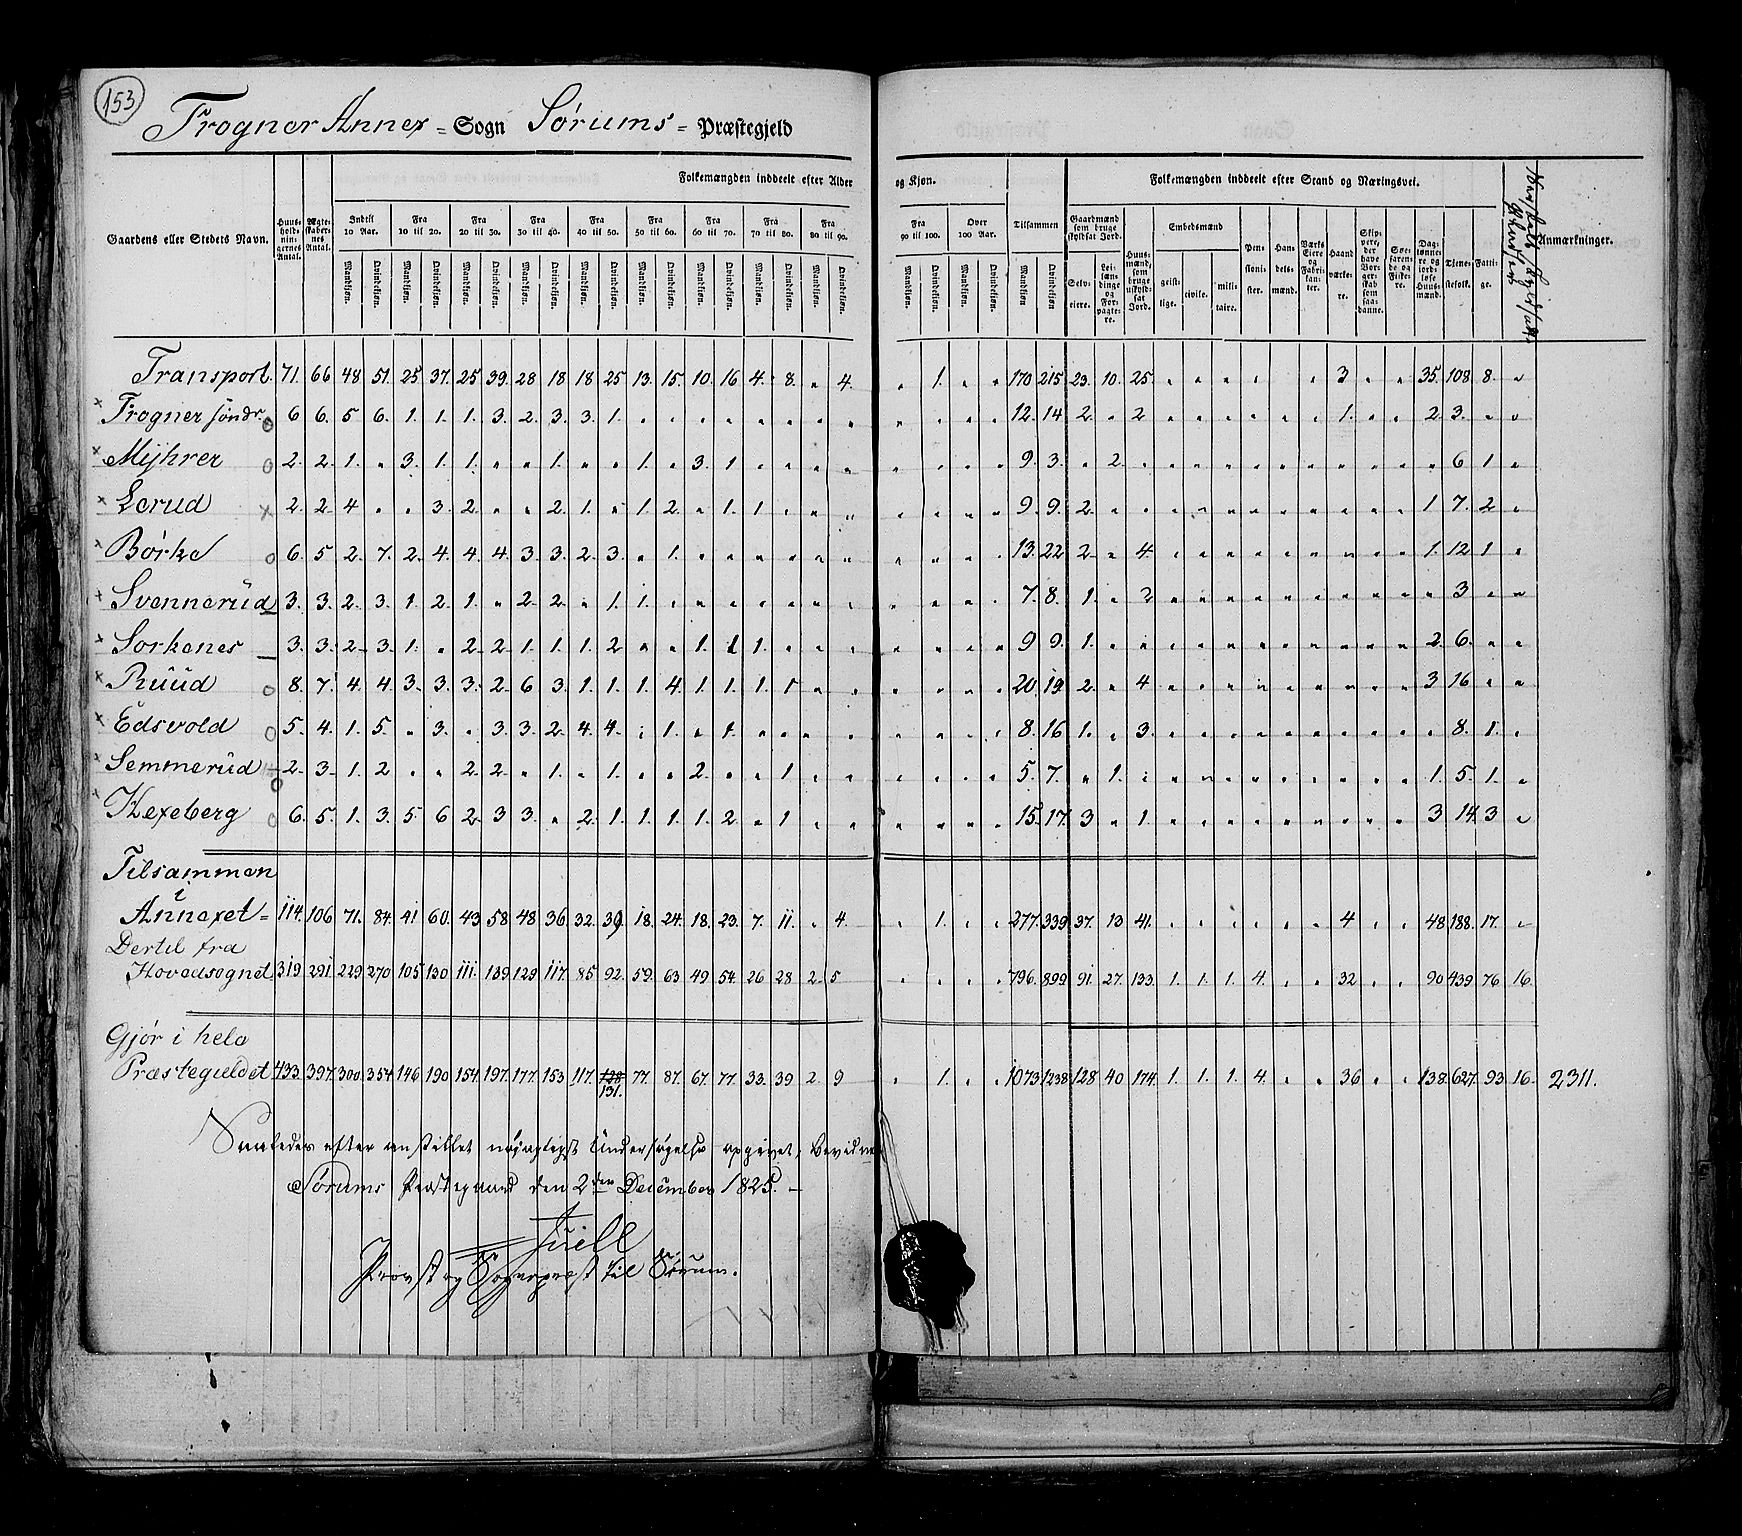 153
Frogner Annex = Sogn Sørums = Præstegjeld
Gaardens eller Stedets Navn. Huus-hold-nin-gernes Antal. Ægte-skaber-nes Antal. Folkemængden inddeelt efter Alder og Kjøn. Tilsammen Folkemængden inddeelt efter Stand og Næringsvei. Anmærkninger.
Indtil 10 Aar. Fra 10 til 20. Fra 20 til 30. Fra 30 til 40. Fra 40 til 50. Fra 50 til 60. Fra 60 til 70. Fra 70 til 80. Fra 80 til 90. Fra 90 til 100. Over 100 Aar.
Gaardmænd som bruge skyldsat Jord. Huus-mænd, som bruge uskyld-sat Jord. Embedsmænd Pen-sioni-ster. Han-dels-mænd. Værks Eiere og Fabri-kan-ter. Haand værke-re. Skip-pere, der have Bor-ger-skab som saa-danne. Søe-farende og Fiske-re. Dag-lønne-re og jord-løse Huus-mænd. Tjene-stefolk. Fatti-ge.
Mandkjøn. Qvindekjøn. Mandkjøn. Qvindekjøn. Mandkjøn. Qvindekjøn. Mandkjøn. Qvindekjøn. Mandkjøn. Qvindekjøn. Mandkjøn. Qvindekjøn. Mandkjøn. Qvindekjøn. Mandkjøn. Qvindekjøn. Mandkjøn. Qvindekjøn. Mandkjøn. Qvindekjøn. Mandkjøn. Qvindekjøn. Mandkjøn Qvindekjøn Selv-eiere. Lei-læn-dinge og For-pagte-re. geist-lige. civile. mili-taire.
Transport. 71. 66 48 51. 25 37. 25 39. 28 18 18 25 13. 15. 10. 16 4. 8. " 4. " 1. " " 170 215 23. 10. 25. " " " " " " 3 " " 35. 108. 8. "
Frogner søndr. 6 6. 5 6. 1. 1. 1. 3. 2. 3. 3. 1. " " " " " " " " " " " " 12. 14 2. " 2 " " " " " " 1. " " 2. 3. " "
Mijhrer 2. 2. 1. " 3. 1. 1. " " 1. " " 1. " 3. 1 " " " " " " " " 9. 3. " 2. " " " " " " " " " " " 6 1. "
Lerud 2. 2. 4 " " 3. 2. " " 2. 1. " 1. 2. " 1. 1. " " " " " " " 9. 9. 2. " " " " " " " " " " " 1. 7. 2 "
Børke 6. 5 2. 7. 2. 4. 4. 4. 3. 3. 2. 3. " 1. " " " " " " " " " " 13. 22 2. " 4. " " " " " " " " " 1. 12 1 "
Svennerüd 3. 3. 2. 3. 1 2. 1. " 2. 2. " 1. 1. " " " " " " " " " " " 7. 8. 1. " 2 " " " " " " " " " " 3 " "
Sorkenes 3. 3. 2. 3. 1. " 2. 2. 1. 1. 1. 2 " " 1. 1 1. " " " " " " " 9 9. 1. " " " " " " " " " " " 2. 6. " "
Rüüd 8. 7. 4. 4. 3. 3. 3. 2. 6 3. 1. 1. 1. 4. 1. 1. 1. 1 " " " " " " 20. 19. 2. " 4 " " " " " " " " " 3 16 " "
Edsvold 5. 4. 1. 5. " 3. " 3. 3. 2. 4. 4. " 1. " 1. " " " " " " " " 8. 16 1. " 3. " " " " " " " " " " 8. 1. "
Semmerüd 2. 3. 1. 2 " " 2. 2. " 1. " 1. " " 2. " " 1. " " " " " " 5. 7. " 1. " " " " " " " " " " 1. 5. 1. "
Kexeberg 6. 5. 1. 3. 5. 6 2. 3 3. " 2. 1. 1. 1. 1. 2. " 1. " " " " " " 15. 17. 3 " 1. " " " " " " " " " 3 14. 3 "
Tilsammen
i
Annexet = 114. 106 71. 84. 41 60. 43 58. 48 36. 32. 39. 18. 24. 18. 23. 7. 11. " 4. " 1. " " 277. 339. 37. 13 41. " " " " " " 4 " " 48 188. 17. "
Dertil fra
Hovedsognet 319. 291. 229. 270 105. 130. 111. 139. 129 117. 85. 92. 59. 63 49 54. 26 28 2. 5 " " " " 796. 899 91. 27. 133. 1. 1. 1. 4. " " 32 " " 90 439 76 16.
Gjør i hele
Præstegieldet 433. 397. 300. 354. 146 190. 154. 197. 177. 153. 117. 128 77. 87. 67. 77. 33. 39. 2. 9 " 1. " " 1073. 1238. 128 40 174. 1. 1. 1. 4. " " 36 " " 138. 627. 93 16. 2311.
131.
Saaledes efter anstillet nøiagtigst Undersøgelse opgivet, bevidner
Sørums Præstegaard den 2den December 1825. –
Juell
Provst og Sognepræst til Sørum.